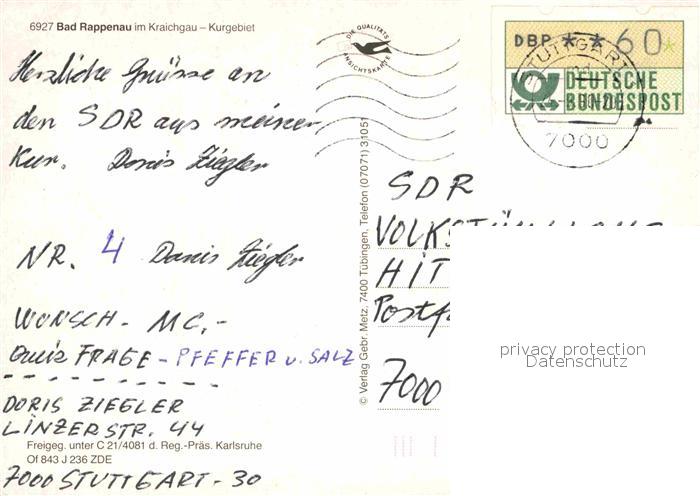 6927 Bad Rappenau im Kraichgau – Kurgebiet
Herzliche Grüsse an
den SDR aus meiner
Kur. Doris Ziegler
NR. 4 Doris Ziegler
WUNSCH - MC,-
Quiz FRAGE - PFEFFER u. SALZ
DORIS ZIEGLER
LINZERSTR. 44
Freigeg. unter C 21/4081 d. Reg.-Präs. Karlsruhe
Of 843 J 236 ZDE
7000 STUTTGART - 30
DIE QUALITÄTS
ANSICHTSKARTE
© Verlag Gebr. Metz, 7400 Tübingen, Telefon (07071) 31051
DBP * * 60 *
DEUTSCHE
BUNDESPOST
STUTTGART
7000
SDR
HIT
7000
privacy protection
Datenschutz